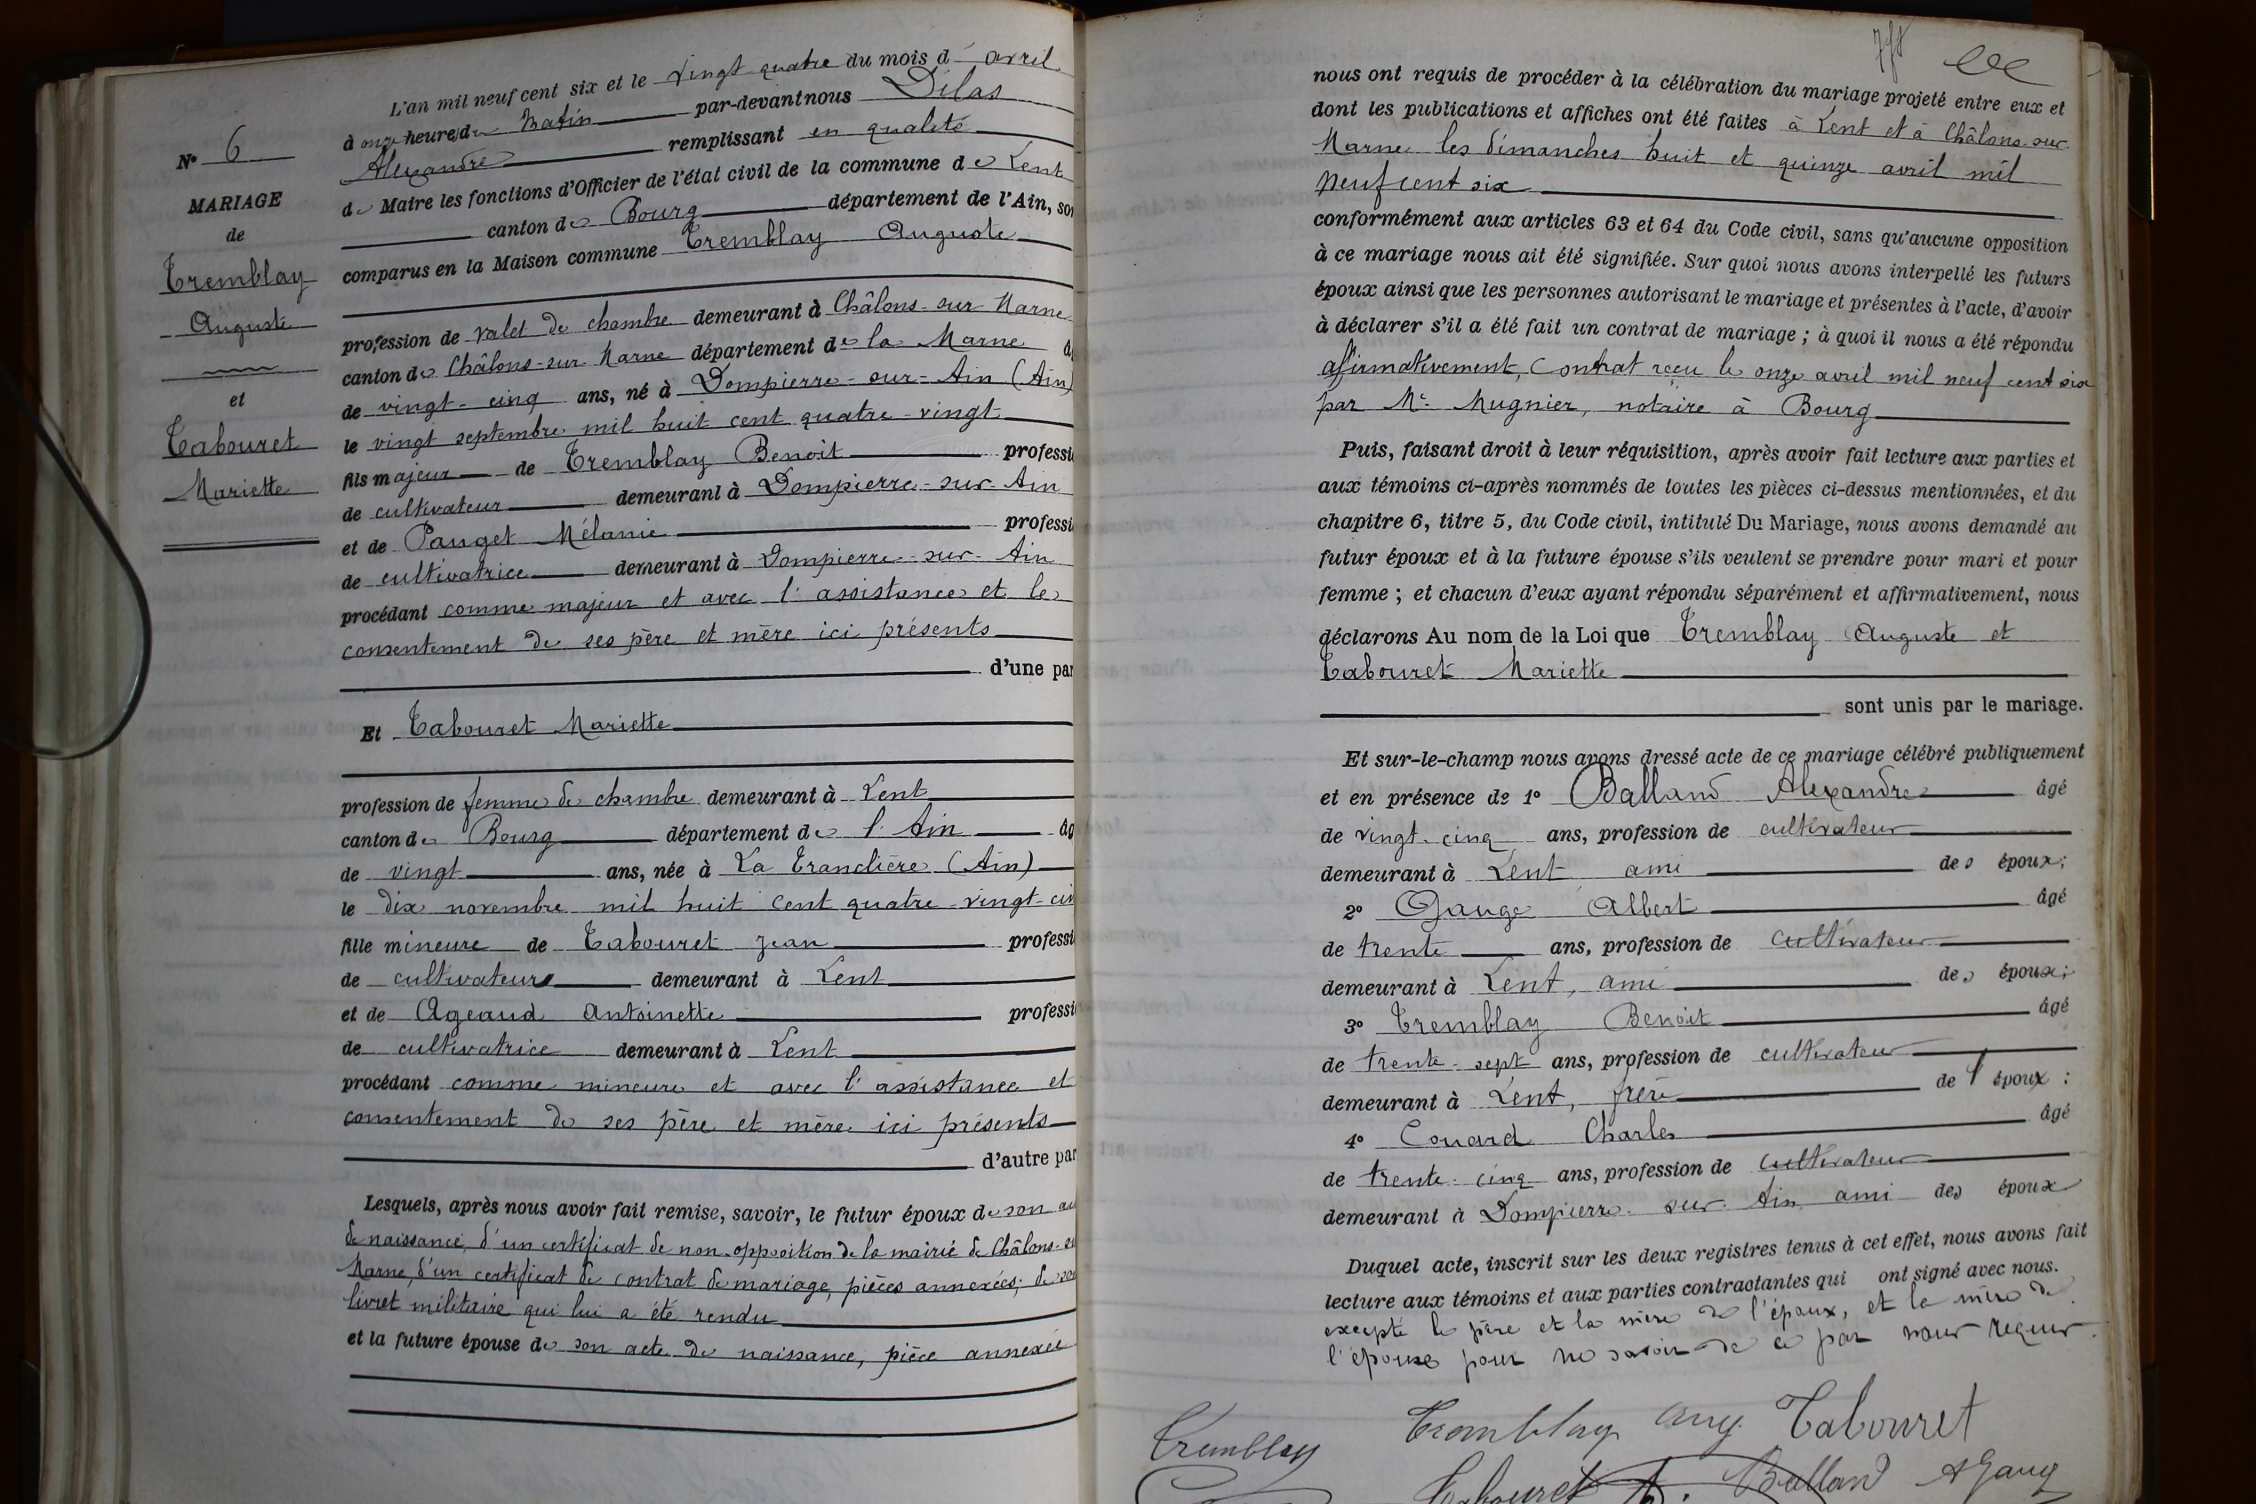 N° 6
MARIAGE
de
Tremblay
Auguste
et
Tabouret
Mariette
L'an mil neuf cent six et le vingt quatre du mois d' avril
à onze heures du Matin par-devant nous Dilas
Alexandre remplissant en qualité
de Maire les fonctions d'Officier de l'état civil de la commune de Lent
canton de Bourg département de l'Ain, son
comparus en la Maison commune Tremblay Auguste
profession de valet de chambre demeurant à Châlons-sur-Marne
canton de Châlons-sur Marne département de la Marne
de vingt-cinq ans, né à Dompierre-sur-Ain (Ain)
le vingt septembre mil huit cent quatre-vingt
fils majeur de Tremblay Benoit professi
de cultivateur demeurant à Dompierre-sur-Ain
et de Pauget Mélanie professi
de cultivatrice demeurant à Dompierre-sur-Ain
procédant comme majeur et avec l'assistance et le
consentement de ses père et mère ici présents
d'une par
Et Tabouret Mariette
profession de femme de chambre demeurant à Lent
canton de Bourg département de l'Ain âg
de vingt ans, née à La Tranclière (Ain)
le dix novembre mil huit cent quatre-vingt-cin
fille mineure de Tabouret Jean professi
de cultivateur demeurant à Lent
et de Ageaud Antoinette professi
de cultivatrice demeurant à Lent
procédant comme mineure et avec l'assistance et
consentement de ses père et mère ici présents
d'autre par
Lesquels, après nous avoir fait remise, savoir, le futur époux de son ac
de naissance, d'un certificat de non-opposition de la mairie de Châlons-su
Marne, d'un certificat de contrat de mariage, pièces annexées; de son
livret militaire qui lui a été rendu
et la future épouse de son acte de naissance, pièce annexée
nous ont requis de procéder à la célébration du mariage projeté entre eux et
dont les publications et affiches ont été faites à Lent et à Châlons-sur-
Marne les dimanches huit et quinze avril mil
neuf cent six
conformément aux articles 63 et 64 du Code civil, sans qu'aucune opposition
à ce mariage nous ait été signifiée. Sur quoi nous avons interpellé les futurs
époux ainsi que les personnes autorisant le mariage et présentes à l'acte, d'avoir
à déclarer s'il a été fait un contrat de mariage ; à quoi il nous a été répondu
afirmativement, Contrat reçu le onze avril mil neuf cent six
par Me Mugnier, notaire à Bourg
Puis, faisant droit à leur réquisition, après avoir fait lecture aux parties et
aux témoins ci-après nommés de toutes les pièces ci-dessus mentionnées, et du
chapitre 6, titre 5, du Code civil, intitulé Du Mariage, nous avons demandé au
futur époux et à la future épouse s'ils veulent se prendre pour mari et pour
femme ; et chacun d'eux ayant répondu séparément et affirmativement, nous
déclarons Au nom de la Loi que Tremblay Auguste et
Tabouret Mariette
sont unis par le mariage.
Et sur-le-champ nous avons dressé acte de ce mariage célébré publiquement
et en présence de 1° Balland Alexandre âgé
de vingt-cinq ans, profession de cultivateur
demeurant à Lent ami des époux;
2° Gauge Albert âgé
de trente ans, profession de cultivateur
demeurant à Lent, ami des époux;
3° Tremblay Benoit âgé
de trente-sept ans, profession de cultivateur
demeurant à Lent, frère de l'époux :
4° Couard Charles âgé
de trente-cinq ans, profession de cultivateur
demeurant à Dompierre-sur-Ain ami des époux
Duquel acte, inscrit sur les deux registres tenus à cet effet, nous avons fait
lecture aux témoins et aux parties contractantes qui ont signé avec nous.
excepté le père et la mère de l'époux, et la mère de
l'épouse pour ne savoir de ce par nous requis.
Tremblay Tremblay Aug. Tabouret
Tabouret Balland A Gaug